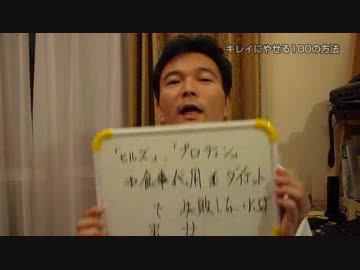 キレイにやせる100の方法
「ヒルズ」、「プロテイン」
食事代用ダイエット
で 失敗しない